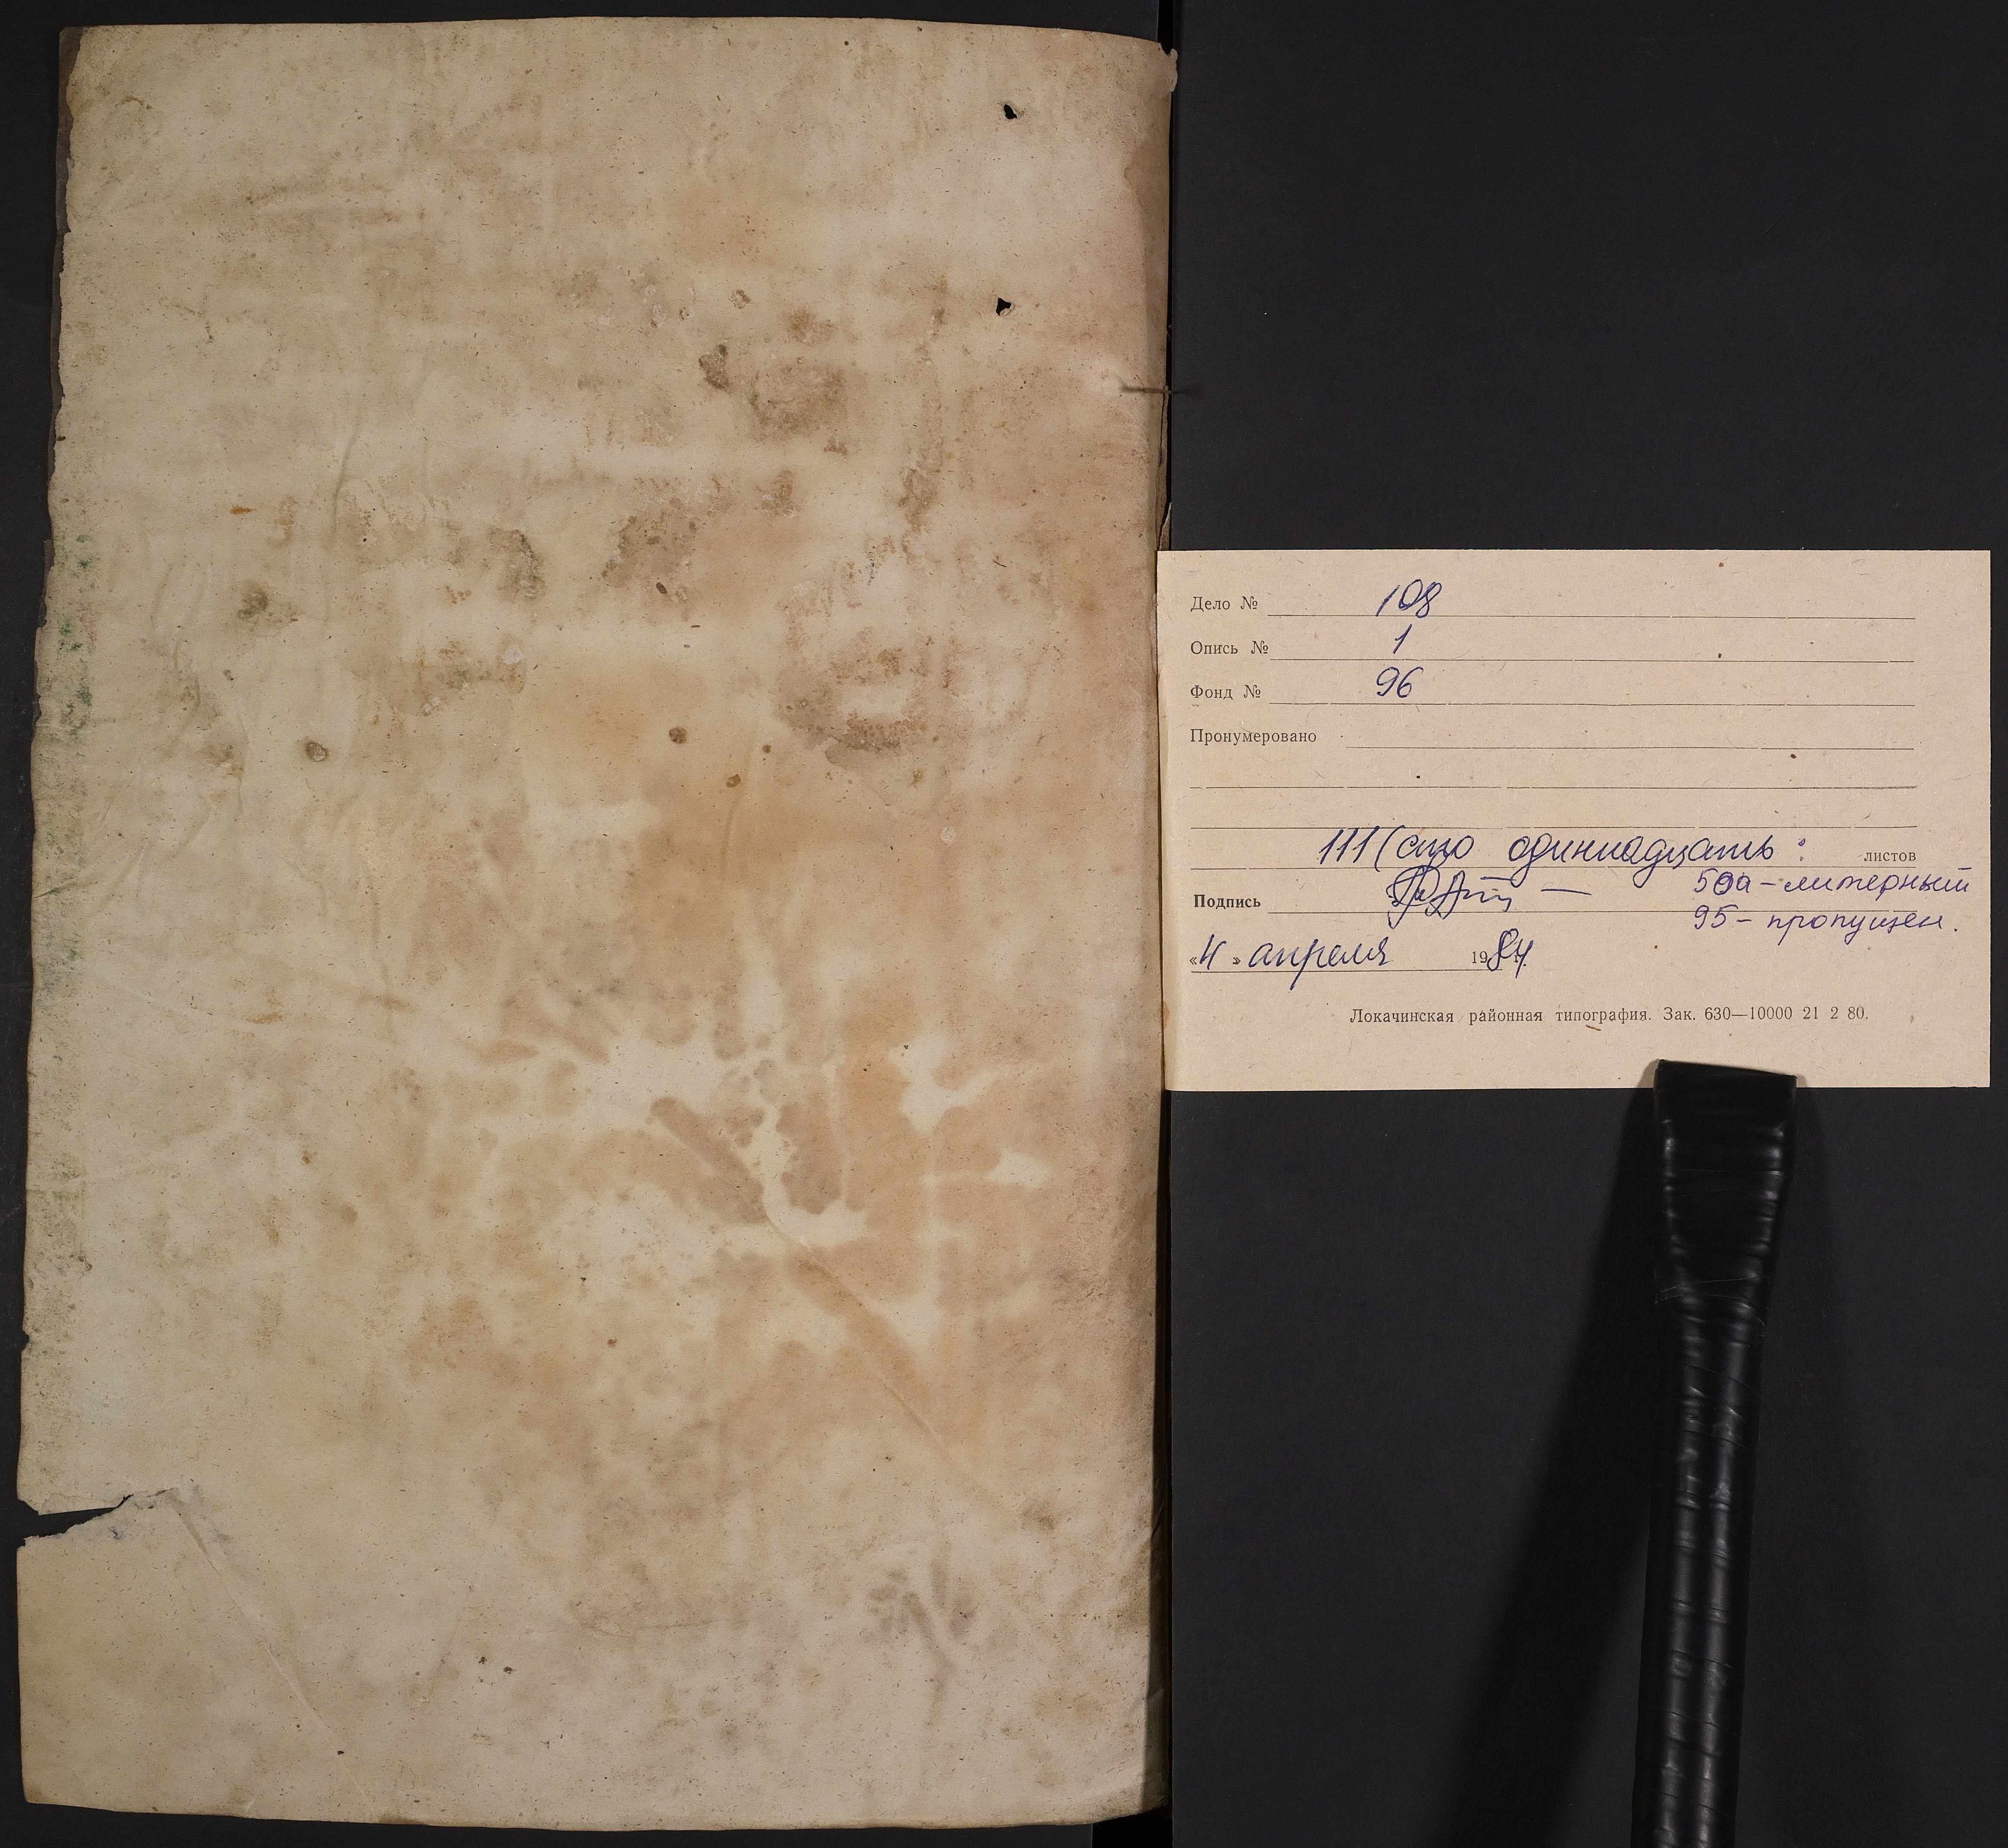 Дело № 108
Опись № 1
Фонд № 96
Пронумеровано
111 (сто одиннадцать : листов
Подпись 50а - литерный
95 - пропущен.
«4» апреля 1984.
Локачинская районная типография. Зак. 630—10000 21 2 80.